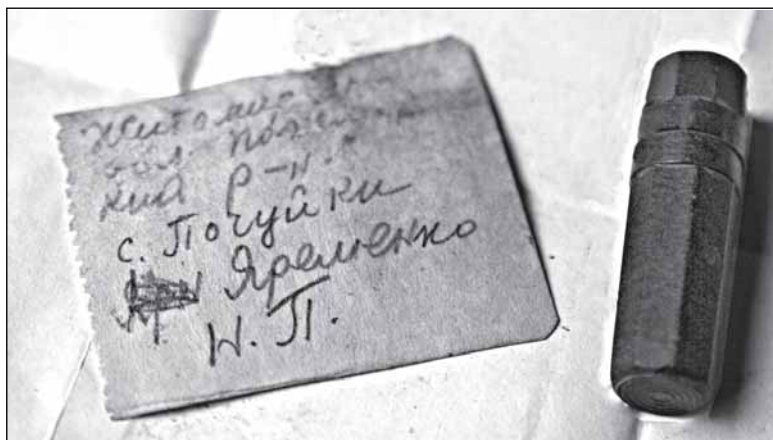 Житомирск
обл. Попель
кий р-н.
с. Почуйки
Яременко
И. П.